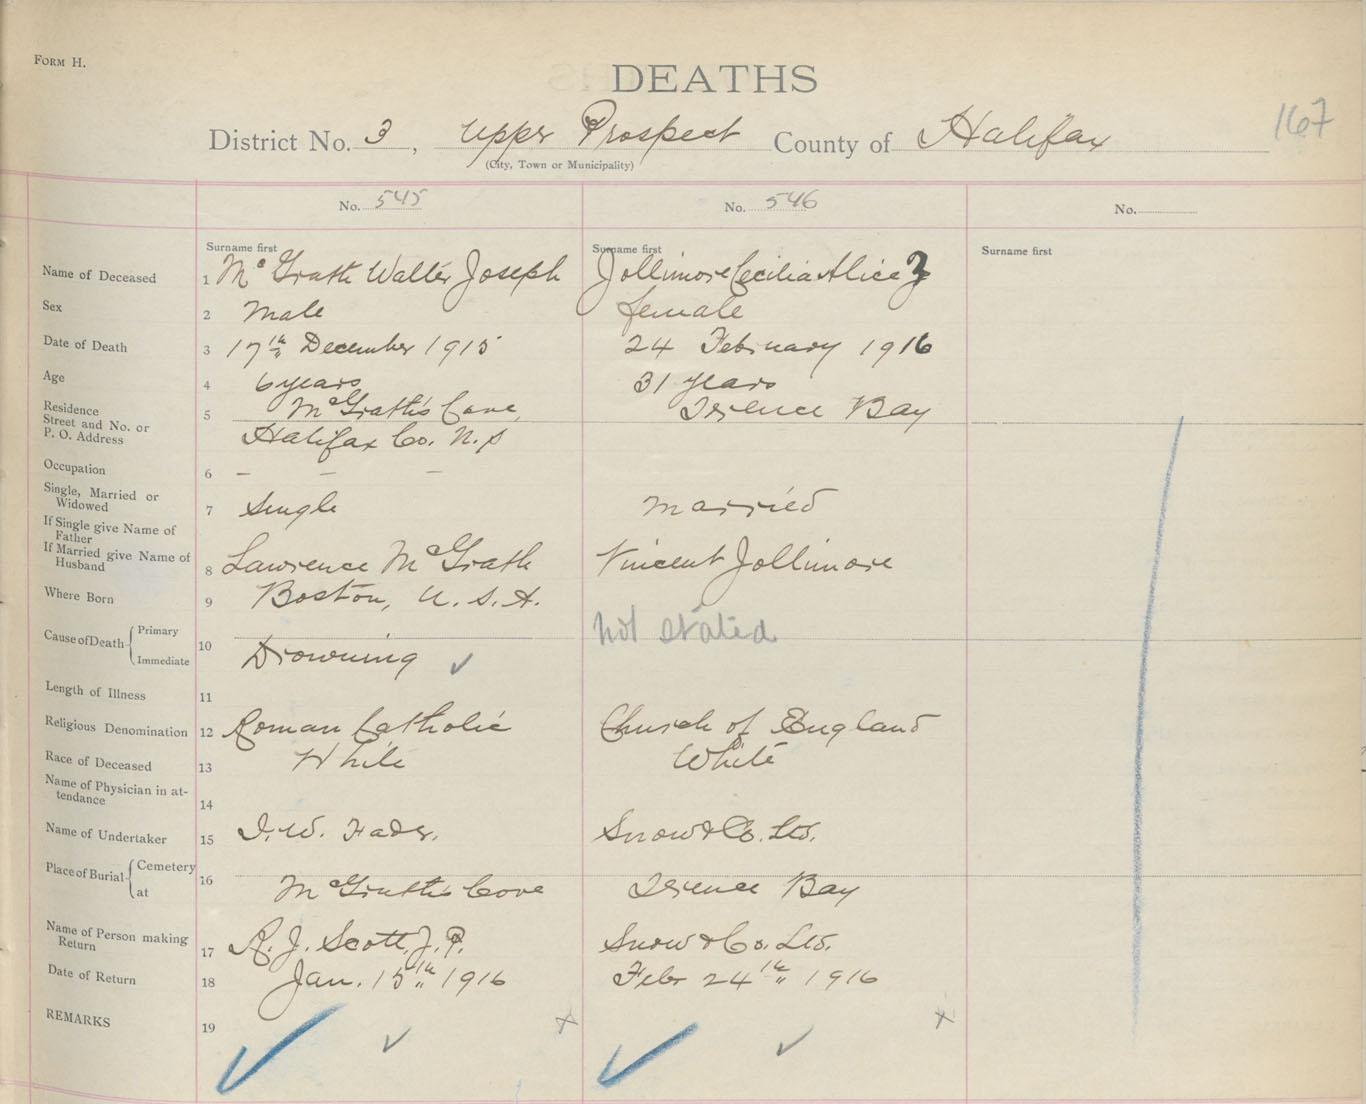 FORM H.
DEATHS
167
District No. 3, Upper Prospect County of Halifax
(City, Town or Municipality)
No. 545 No. 546 No.
Surname first Surname first Surname first
Name of Deceased 1 McGrath Walter Joseph Jollimore Cecilia Alice
Sex 2 Male female
Date of Death 3 17th December 1915 24 February 1916
Age 4 6 years 31 years
Residence 5 McGrath's Cove, Terence Bay
Street and No. or
P. O. Address Halifax Co. N.S
Occupation 6 – – –
Single, Married or
Widowed 7 Single married
If Single give Name of
Father
If Married give Name of
Husband 8 Lawrence McGrath Vincent Jollimore
Where Born 9 Boston, U.S.A.
Cause of Death { Primary not stated
10
Immediate Drowning ✓
Length of Illness 11
Religious Denomination 12 Roman Catholic Church of England
Race of Deceased 13 White White
Name of Physician in at-
tendance 14
Name of Undertaker 15 Snow & Co. Ltd.
Place of Burial { Cemetery
16
at McGrath's Cove Terence Bay
Name of Person making
Return 17 R. J. Scott, J. P. Snow & Co. Ltd.
Date of Return 18 Jan. 15th 1916 Febr 24th 1916
REMARKS 19 ✓ ✓ x ✓ ✓ x